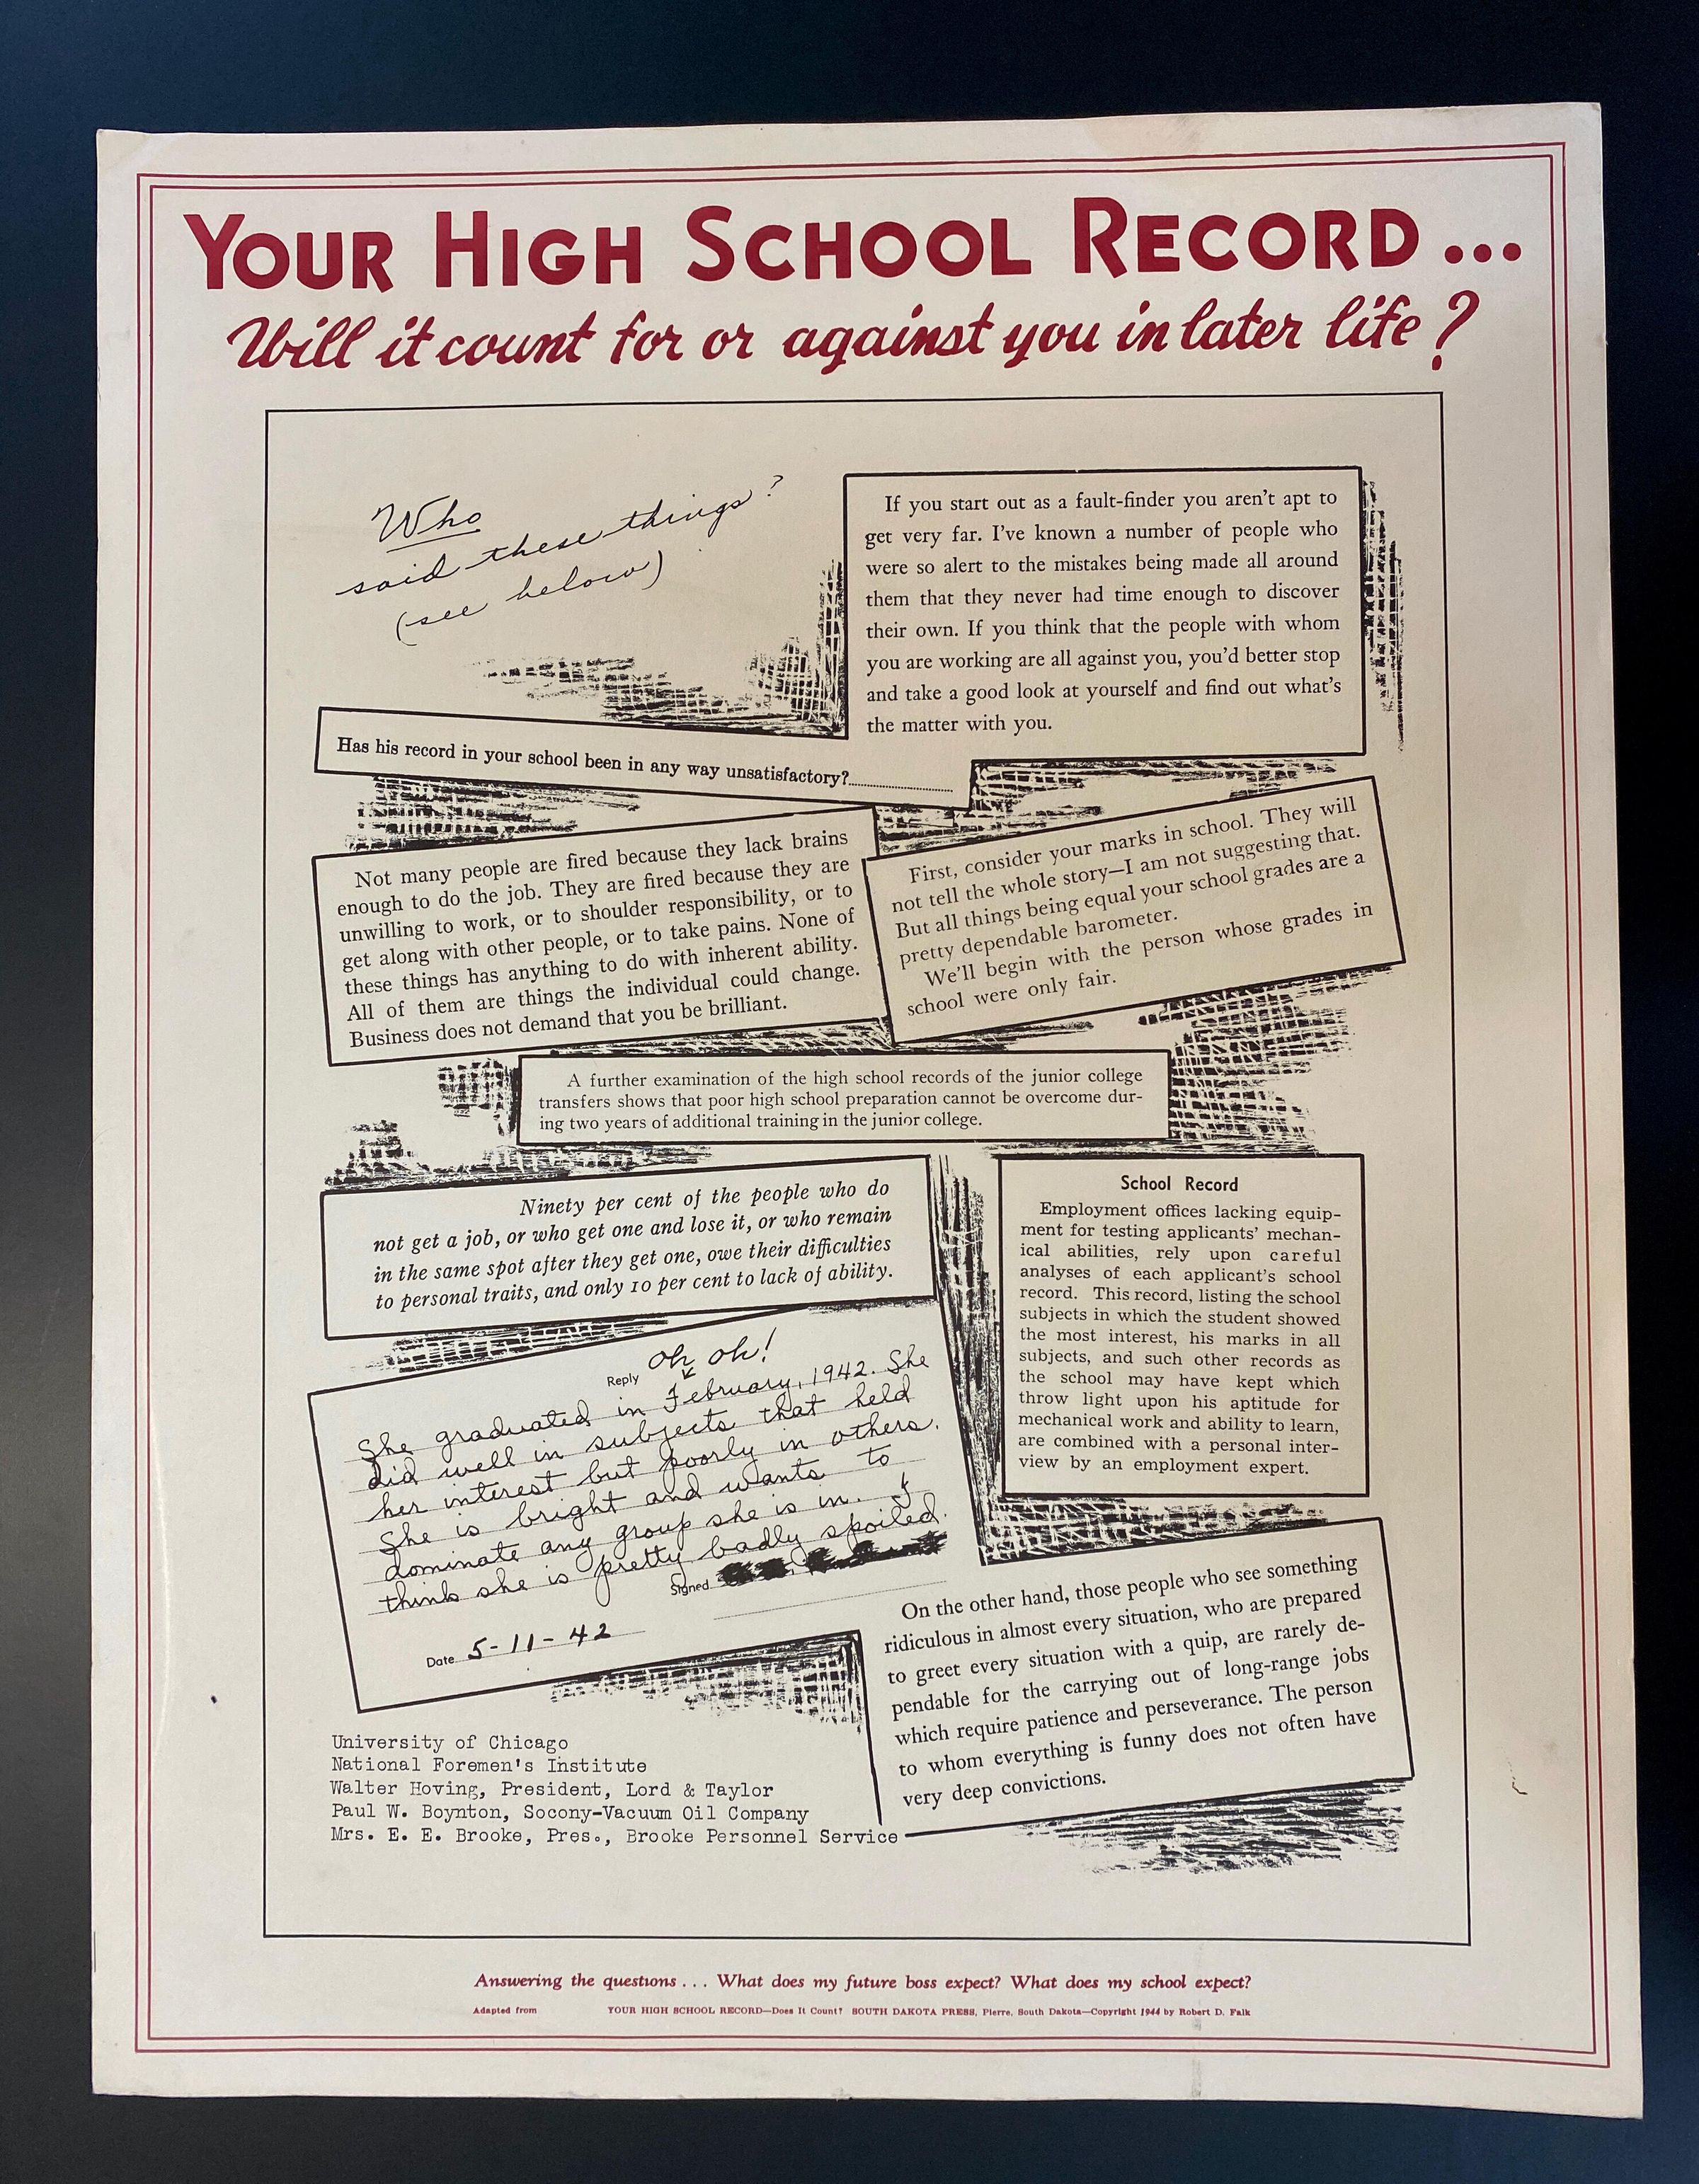 YOUR HIGH SCHOOL RECORD...
Will it count for or against you in later life?
Who
said these things?
(see below)
If you start out as a fault-finder you aren't apt to
get very far. I've known a number of people who
were so alert to the mistakes being made all around
them that they never had time enough to discover
their own. If you think that the people with whom
you are working are all against you, you'd better stop
and take a good look at yourself and find out what's
the matter with you.
Has his record in your school been in any way unsatisfactory?
Not many people are fired because they lack brains
enough to do the job. They are fired because they are
unwilling to work, or to shoulder responsibility, or to
get along with other people, or to take pains. None of
these things has anything to do with inherent ability.
All of them are things the individual could change.
Business does not demand that you be brilliant.
First, consider your marks in school. They will
not tell the whole story—I am not suggesting that.
But all things being equal your school grades are a
pretty dependable barometer.
We'll begin with the person whose grades in
school were only fair.
A further examination of the high school records of the junior college
transfers shows that poor high school preparation cannot be overcome dur-
ing two years of additional training in the junior college.
Ninety per cent of the people who do
not get a job, or who get one and lose it, or who remain
in the same spot after they get one, owe their difficulties
to personal traits, and only 10 per cent to lack of ability.
School Record
Employment offices lacking equip-
ment for testing applicants' mechan-
ical abilities, rely upon careful
analyses of each applicant's school
record. This record, listing the school
subjects in which the student showed
the most interest, his marks in all
subjects, and such other records as
the school may have kept which
throw light upon his aptitude for
mechanical work and ability to learn,
are combined with a personal inter-
view by an employment expert.
Oh, oh!
Reply
She graduated in February, 1942. She
did well in subjects that held
her interest but poorly in others.
She is bright and wants to
dominate any group she is in. I
think she is pretty badly spoiled.
Signed
Date 5-11-42
On the other hand, those people who see something
ridiculous in almost every situation, who are prepared
to greet every situation with a quip, are rarely de-
pendable for the carrying out of long-range jobs
which require patience and perseverance. The person
to whom everything is funny does not often have
very deep convictions.
University of Chicago
National Foremen's Institute
Walter Hoving, President, Lord & Taylor
Paul W. Boynton, Socony-Vacuum Oil Company
Mrs. E. E. Brooke, Pres., Brooke Personnel Service
Answering the questions... What does my future boss expect? What does my school expect?
Adapted from YOUR HIGH SCHOOL RECORD—Does It Count? SOUTH DAKOTA PRESS, Pierre, South Dakota—Copyright 1944 by Robert D. Falk